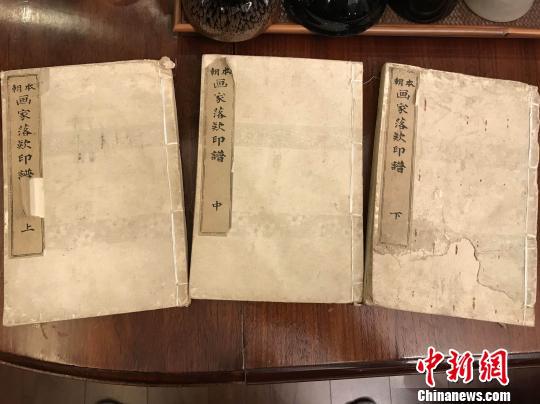 本朝画家落欵印譜 上
本朝画家落欵印譜 中
本朝画家落欵印譜 下
中新網
Chinanews.com